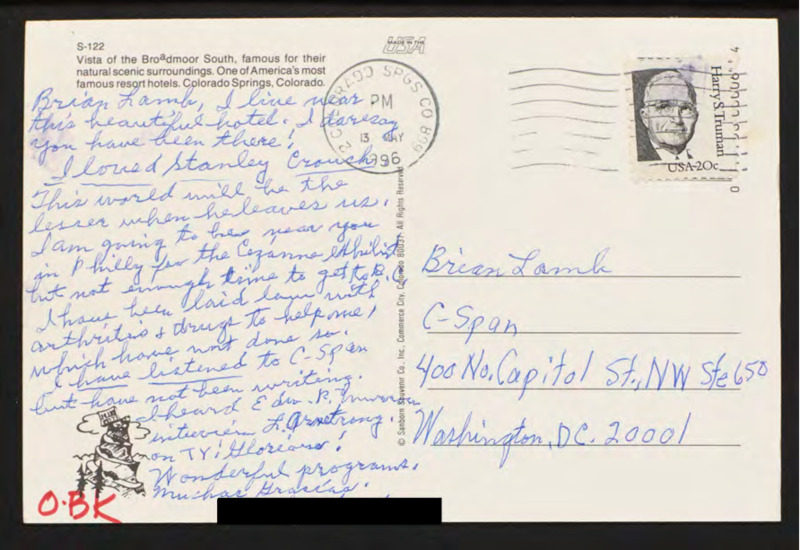 S-122
Vista of the Broadmoor South, famous for their
natural scenic surroundings. One of America's most
famous resort hotels. Colorado Springs, Colorado.
MADE IN THE
USA
Brian Lamb, I live near
this beautiful hotel. I daresay
you have been there!
I loved Stanley Crouch!
This world will be the
lesser when he leaves us.
I am going to be near you
in Philly for the Cezanne Exhibit
but not enough time to get to D.C.
I have been laid low with
arthritis & drugs to help me,
which have not done so.
I have listened to C-Span
but have not been writing.
I heard Edw. R. Murrow
interview L. Armstrong.
on TV! Glorious!
Wonderful programs.
Muchas Gracias.
O.BK
© Sanborn Souvenir Co., Inc., Commerce City, Colorado 80037 All Rights Reserved
COLORADO SPGS CO 809
PM
13 MAY
1996
Harry S. Truman
USA 20c
Brian Lamb
C-Span
400 No. Capitol St., NW Ste 650
Washington, DC. 20001